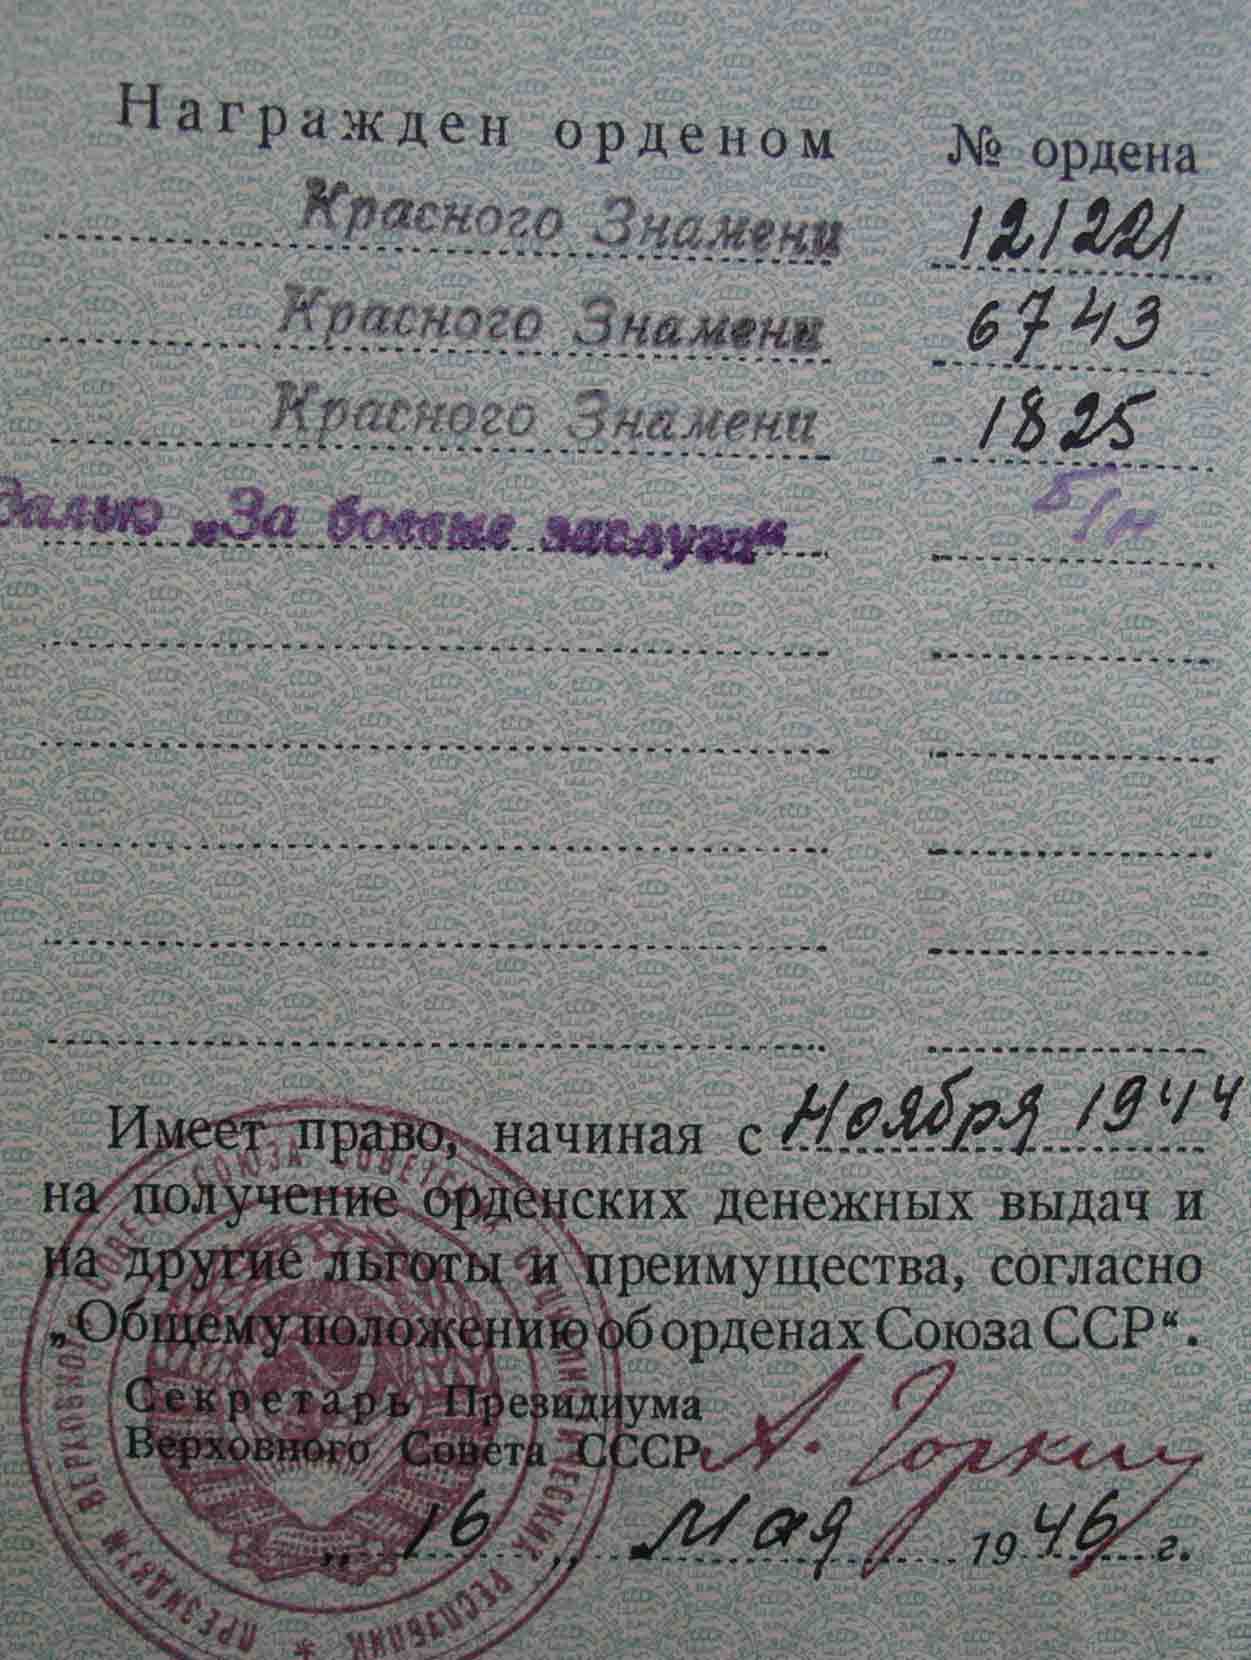 Награжден орденом № ордена
Красного Знамени 121221
Красного Знамени 6743
Красного Знамени 1825
далью „За боевые заслуги“ б/н
Имеет право, начиная с Ноября 1944
на получение орденских денежных выдач и
на другие льготы и преимущества, согласно
„Общему положению об орденах Союза ССР“.
Секретарь Президиума
Верховного Совета СССР А. Горкин
„16„ Мая 1946 г.
ПРЕЗИДИУМ ВЕРХОВНОГО СОВЕТА СОЮЗА СОВЕТСКИХ СОЦИАЛИСТИЧЕСКИХ РЕСПУБЛИК *